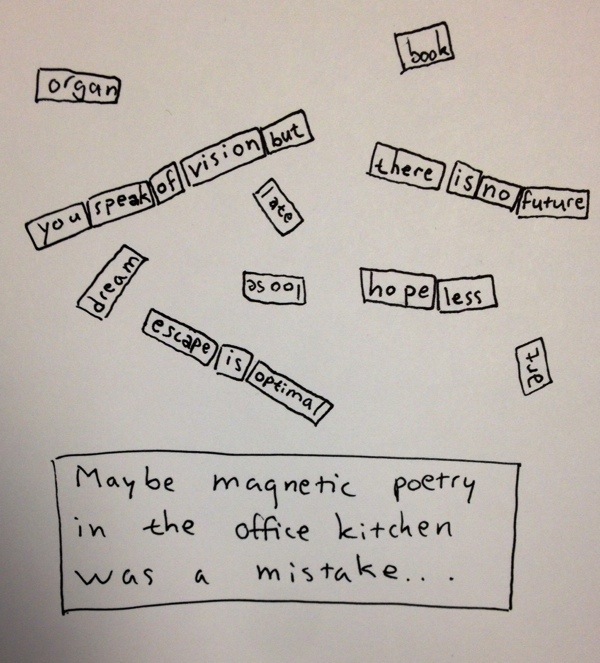 book
organ
you speak of vision but
there is no future
late
dream
loose
hope less
escape is optimal
art
Maybe magnetic poetry
in the office kitchen
was a mistake...